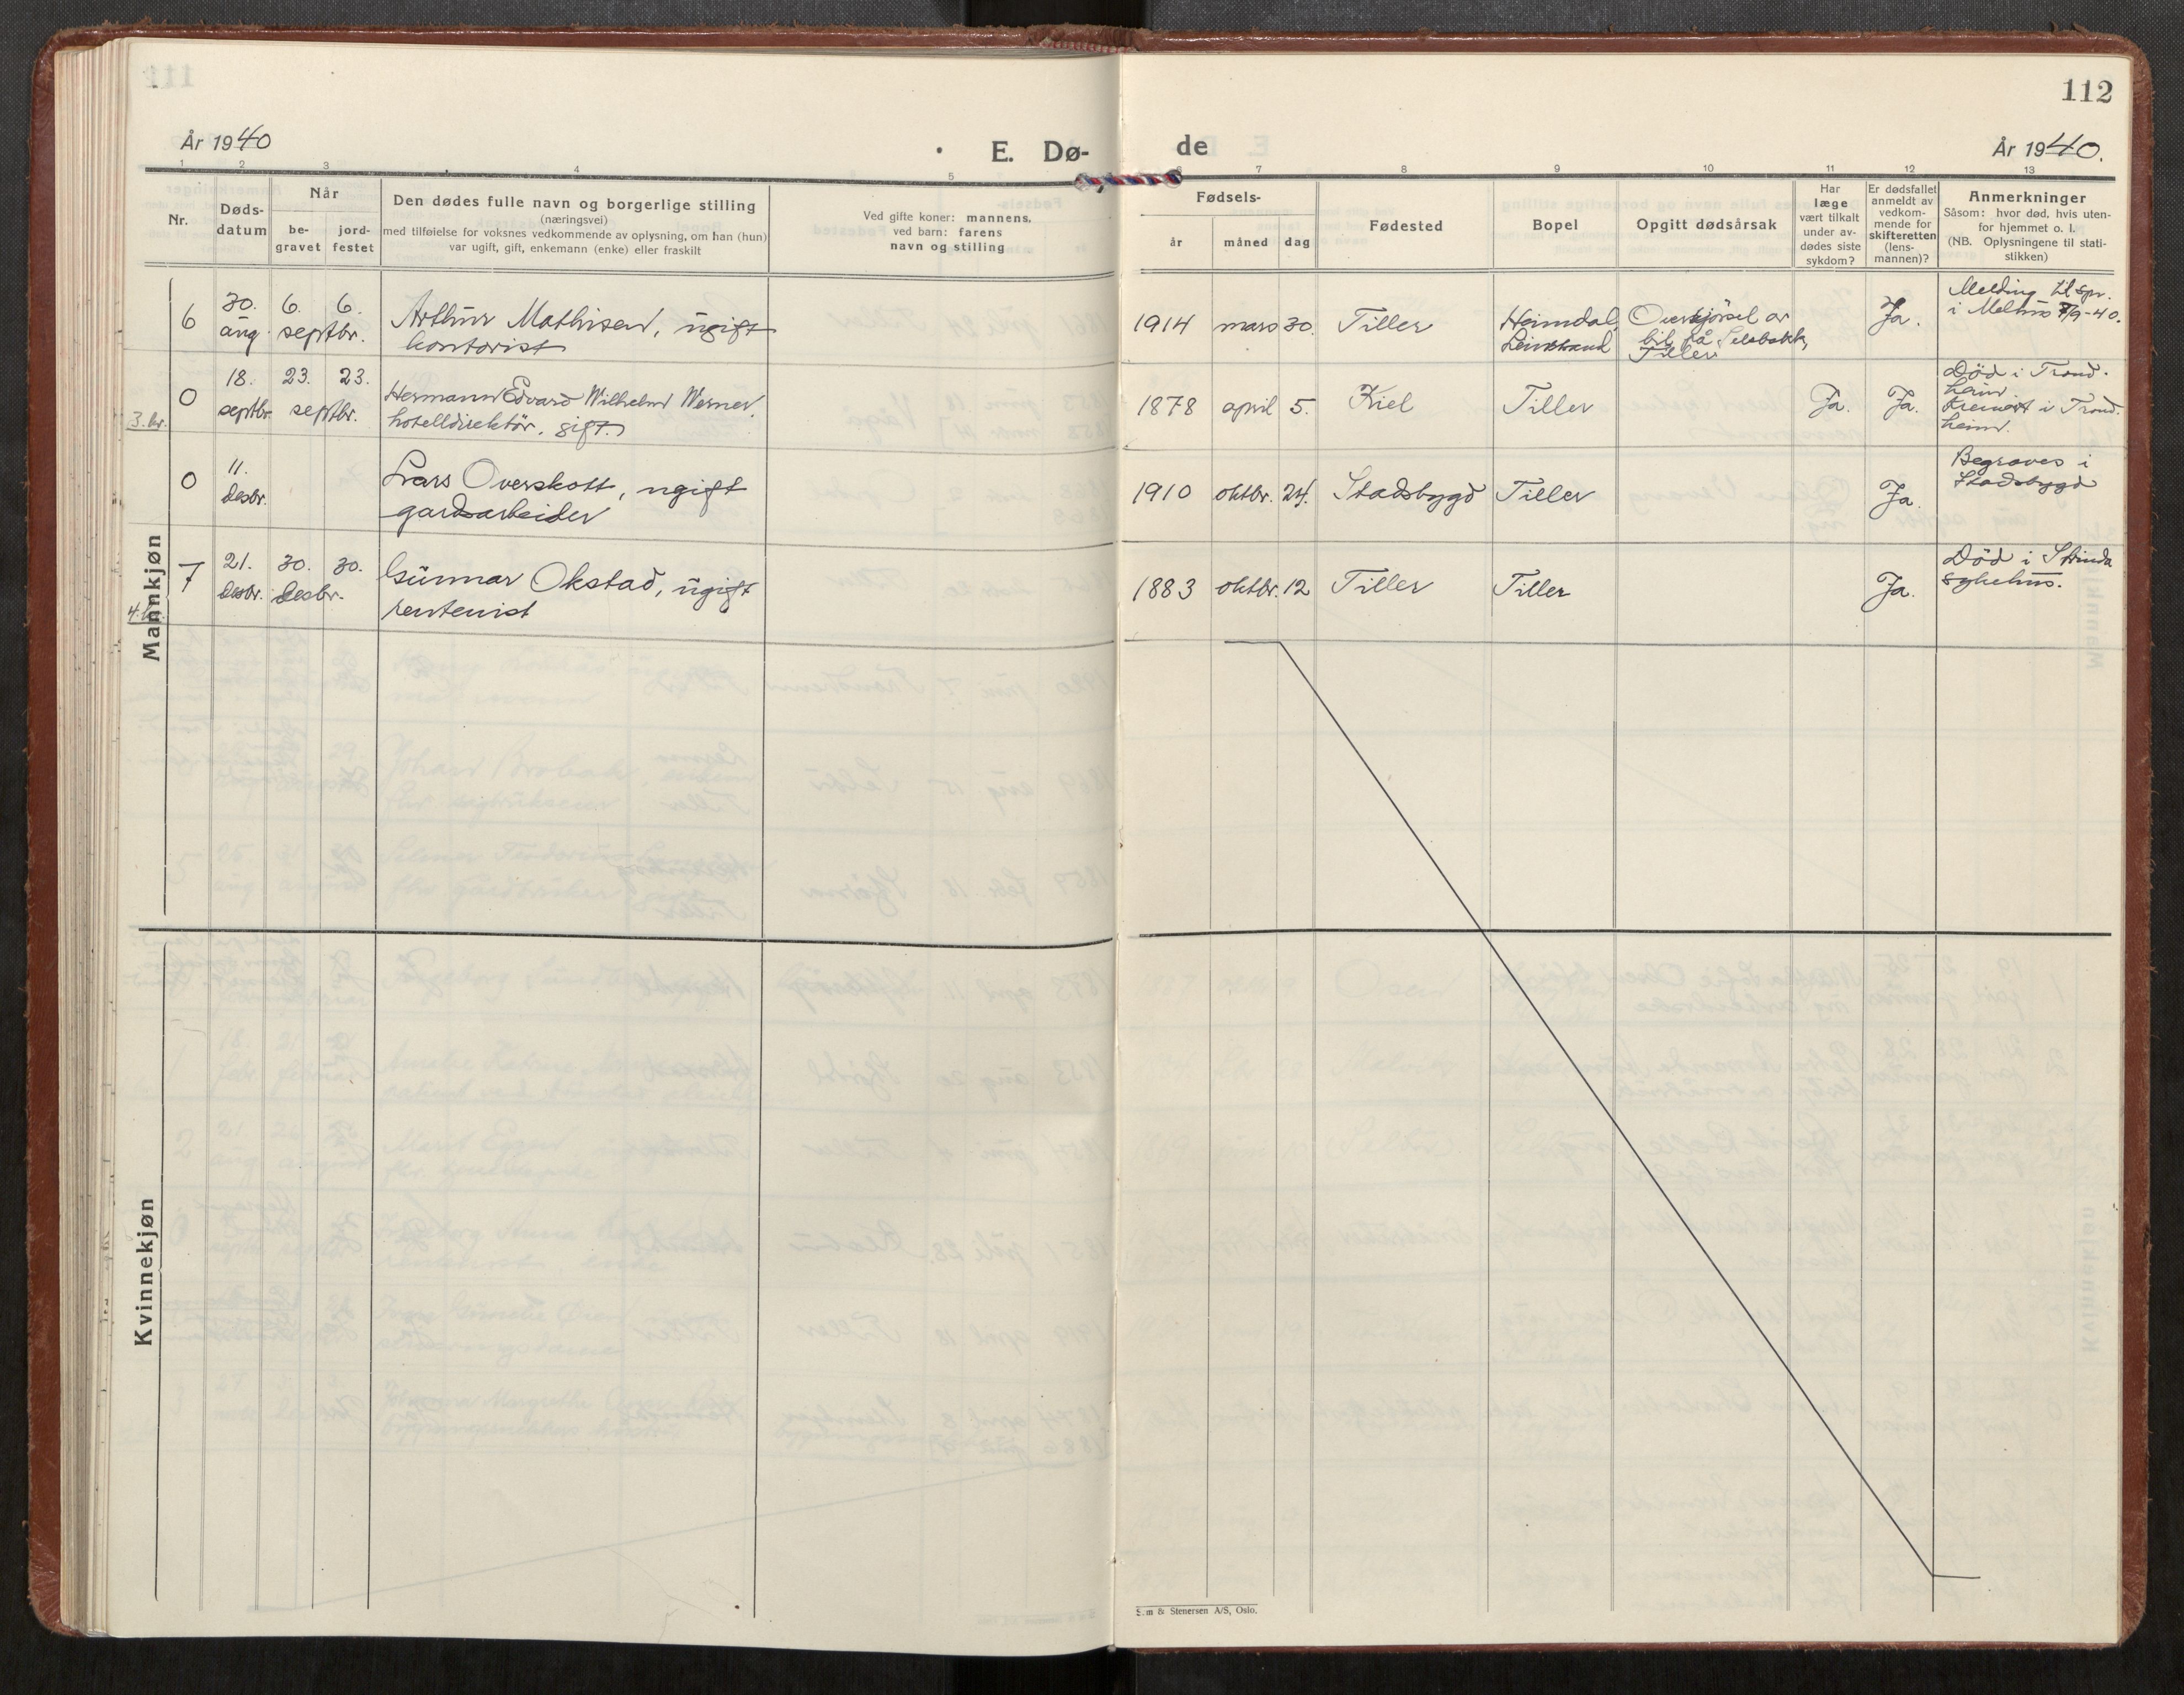 112
År 1940
E. Dø-
de
År 1940.
1 2 3 4 5
6 7 8 9 10 11 12 13
Nr.
Døds-
datum
Når
be-
gravet
jord-
festet
Den dødes fulle navn og borgerlige stilling
(næringsvei)
med tilføielse for voksnes vedkommende av oplysning, om han (hun)
var ugift, gift, enkemann (enke) eller fraskilt
Ved gifte koner: mannens,
ved barn: farens
navn og stilling
Fødsels-
år
måned
dag
Fødested
Bopel
Opgitt dødsårsak
Har
læge
vært tilkalt
under av-
dødes siste
sykdom?
Er dødsfallet
anmeldt av
vedkom-
mende for
skifteretten
(lens-
mannen)?
Anmerkninger
Såsom: hvor død, hvis uten-
for hjemmet o. l.
(NB. Oplysningene til stati-
stikken)
Mannkjøn
6
30.
aug.
6. 6.
septbr.
Arthur Mathisen, ugift
kontorist
1914 mars 30.
Tiller
Heimdal,
Leinstrand
Overkjörsel av
bil på Selsbakk,
Tiller
Ja.
Melding til spr.
i Melhus 7/9-40.
3. kv.
0
18.
septbr.
23. 23.
septbr.
Hermann Edvard Wilhelm Werner,
hotelldirektör, gift.
1878 april 5.
Kiel
Tiller
Ja.
Ja.
Död i Trond-
heim.
Kremert i Trond-
heim.
0
11.
desbr.
Lars Overskott, ugift
gardsarbeider
1910 oktbr. 24.
Stadsbygd
Tiller
Ja.
Begraves i
Stadsbygd
4. kv.
7
21.
desbr.
30. 30.
desbr.
Gunnar Okstad, ugift
rentenist
1883 oktbr. 12
Tiller
Tiller
Ja.
Död i Strinda
sykehus.
Kvinnekjøn
Sem & Stenersen A/S, Oslo.